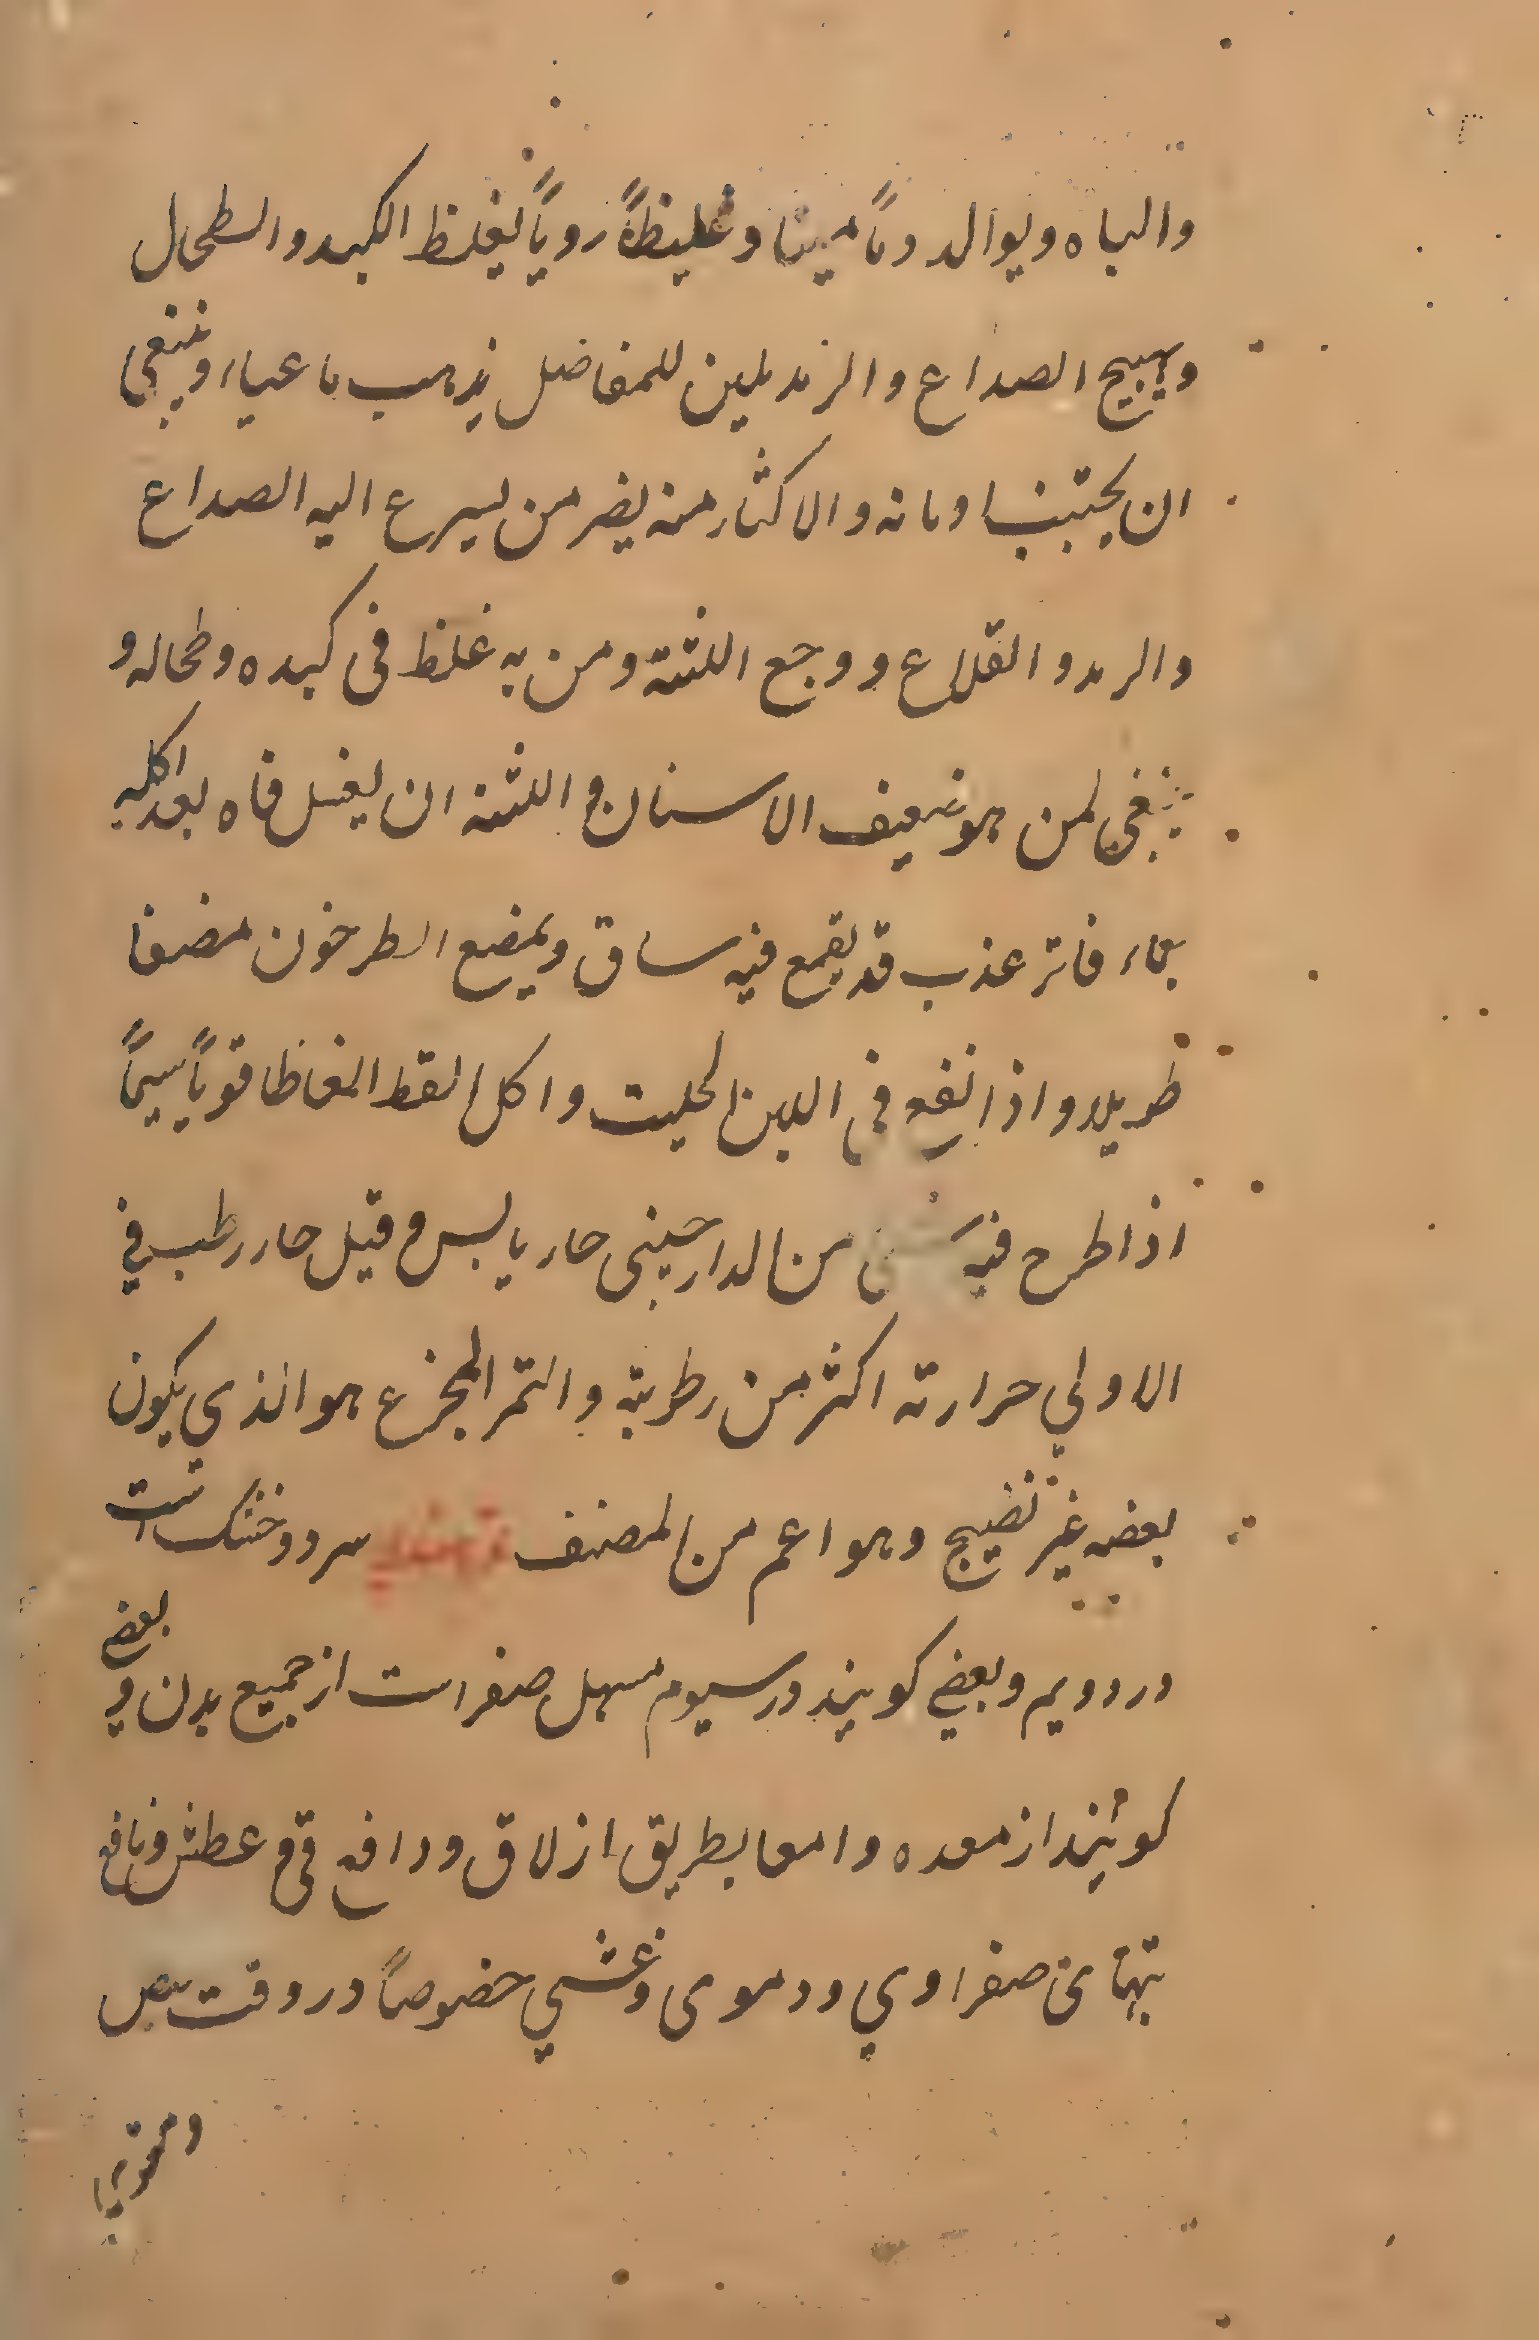 والباه ويوالد دماً متينا وغليظاً روياً ليغلظ الكبد والطحال
ويهيج الصداع والزند يلين للمفاصل يذهب باعياء وينبغى
ان يجتنب اومانه والاكثار منه يضر من يسرع اليه الصداع
والرمد والقلاع ووجع اللثة ومن به غلظ فى كبده وطحاله و
ينبغي لمن هو ضعيف الاسنان واللثه ان يغسل فاه بعد اكله
بماء فاتر عذب قد يقمع فيه سماق ويمضع الطرخون مضغا
طويلا و اذا نفع فى اللبن الحليت واكل القط المغاظا قوياً سيماً
اذا طرح فيه شى من الدارحينى حار يابس و قيل حار رطب فى
الاولي حرارته اكثر من رطوبته والتمر المجزع هو الذي يكون
بعضه غير نضيج وهو اعم من المصنف تمر هندي سرد و خشك است
در دويم و بعضي كويند در سيوم مسهل صفراست از جميع بدن و بعضي
كوئيند از معده و امعا بطريق ازلاق و دافع قى و عطش و نافع
تبهاى صفراوي و دموى و غشي خصوصاً در وقت
ومقوى